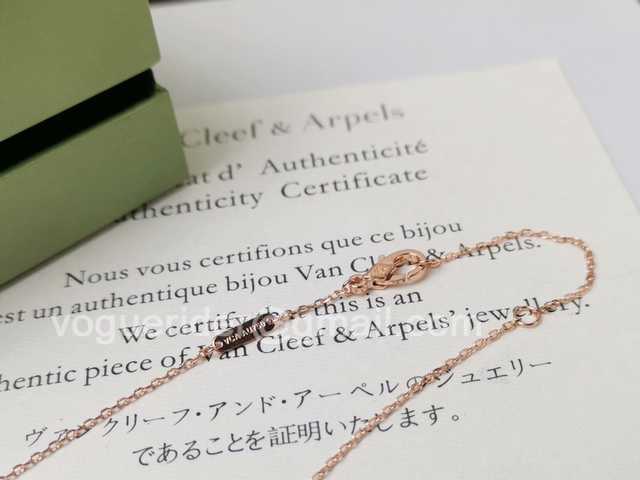 Cleef & Arpels
at d' Authenticité
thenticity Certificate
Nous vous certifions que ce bijou
est un authentique bijou Van Cleef & Arpels.
We certify that this is an
hentic piece of Van Cleef & Arpels' jewellery.
ヴァン クリーフ・アンド・アーペル のジュエリー
であることを証明いたします。